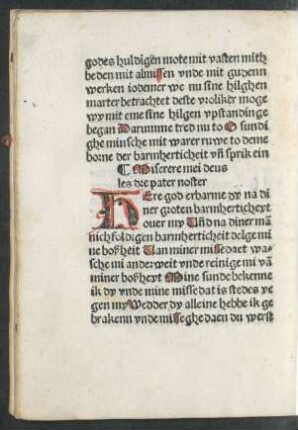 godes huldigen mote mit vasten mith
beden mit almissen vnde mit gudenn
werken iodener we nu sine hilghen
marter betrachtet deste vroliker moge
wy mit eme sine hilgen vpstandinge
began Darumme tred nu to O sundi
ghe minsche mit warer ruwe to deme
borne der barmherticheit vn̄ sprik ein
Miserere mei deus
les dre pater noster
HEre god erbarme dy na di
ner groten barmherticheyt
ouer my Vnd na diner mā
nichfoldigen barmherticheit delge mi
ne boßheit Van miner missedaet wa
sche mi anderweit vnde reinige mi vā
miner boßheyt Mine sunde bekenne
ik dy vnde mine missedat is stedes ye
gen my Wedder dy alleine hebbe ik ge
brakenn vnde misseghedaen du werst